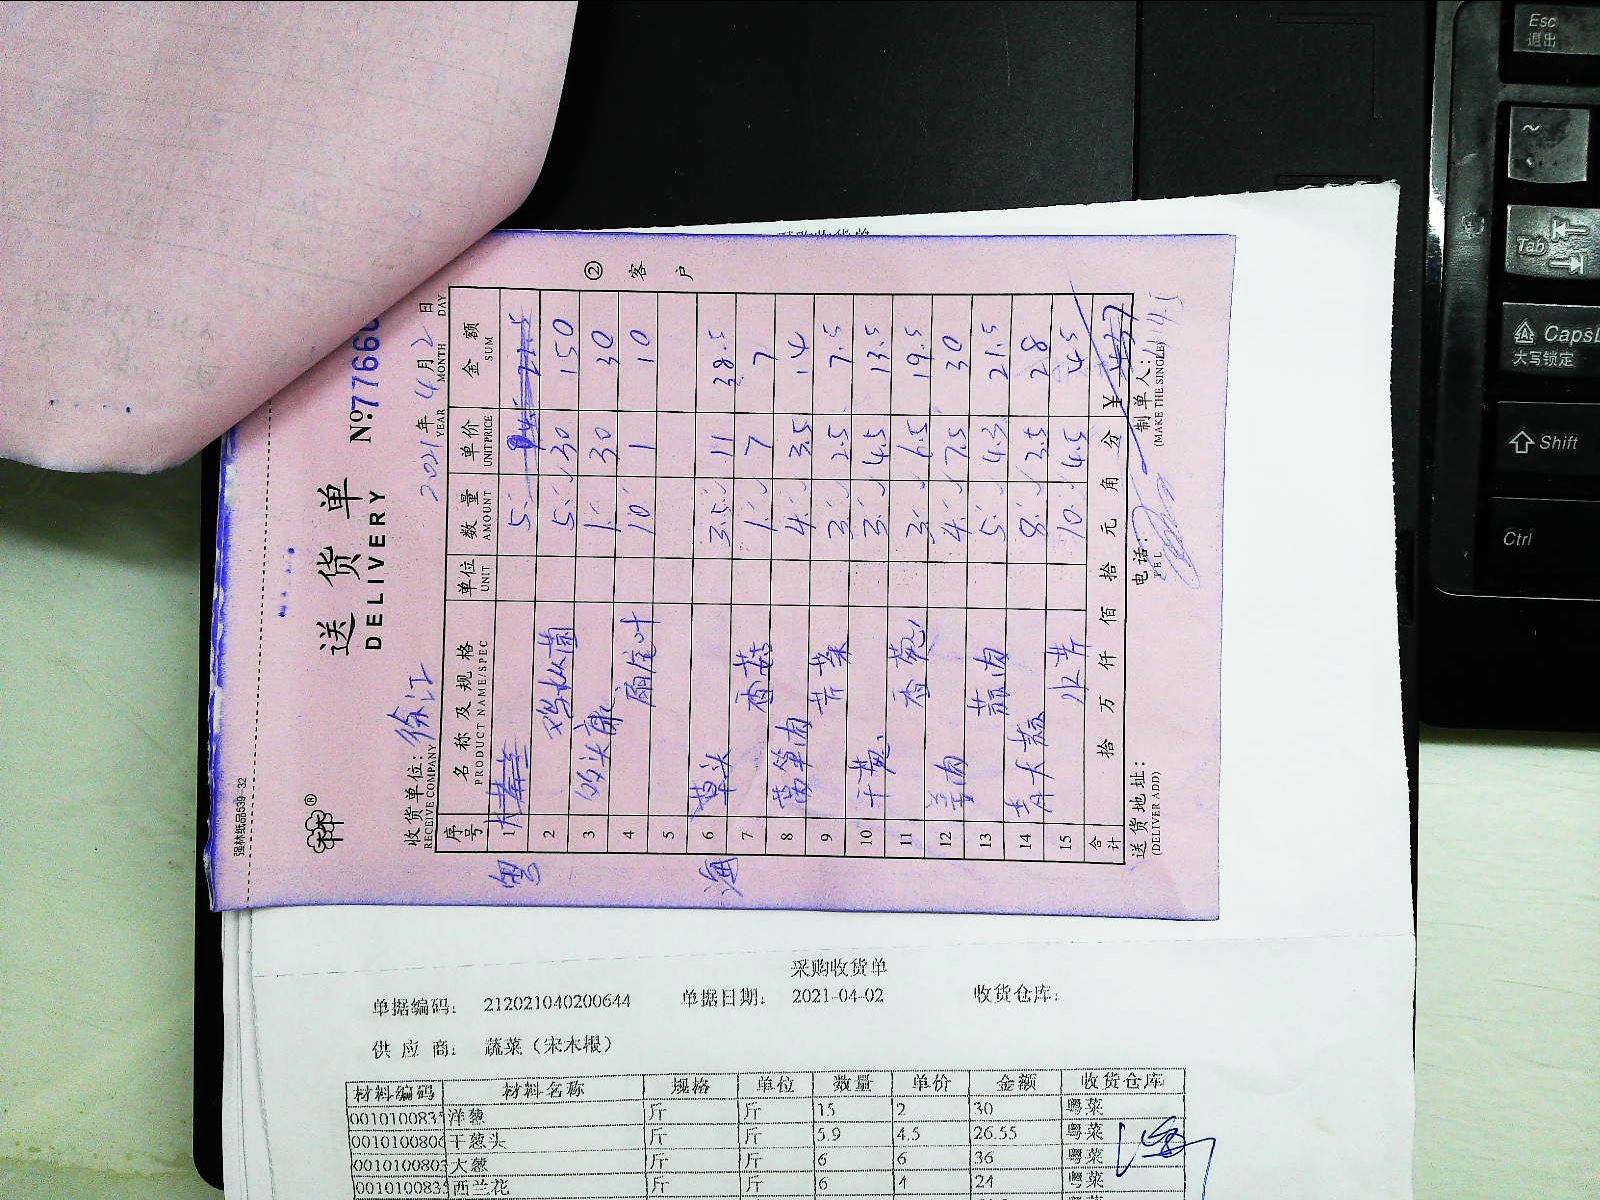 强林纸品539-32
送货单
DELIVERY
No:7766
② 客户
收货单位: 徐汇
RECEIVE COMPANY
2021年4月2日
YEAR MONTH DAY
序号 名称及规格 单位 数量 单价 金额
PRODUCT NAME/SPEC UNIT AMOUNT UNIT PRICE SUM
粤 1 5
2 鸡枞菌 5 30 150
3 1 30 30
4 10 1 10
5
海 6 草头 3.5 11 38.5
7 香菇 1 7 7
8 莴笋肉 4 3.5 14
9 芹菜 3 2.5 7.5
10 干葱 3 4.5 13.5
11 香葱 3 6.5 19.5
12 姜肉 4 7.5 30
13 蒜肉 5 4.3 21.5
14 青大蒜 8 3.5 28
15 水芹 10 4.5 45
合计 拾 万 仟 佰 拾 元 角 分 ¥
送货地址: 电话: 制单人:
(DELIVER ADD) (MAKE THE SINGLE)
采购收货单
单据编码: 212021040200644 单据日期: 2021-04-02 收货仓库:
供应商: 蔬菜(宋木根)
材料编码 材料名称 规格 单位 数量 单价 金额 收货仓库
001010083 洋葱 斤 斤 15 2 30 粤菜
001010080 干葱头 斤 斤 5.9 4.5 26.55 粤菜
001010080 大葱 斤 斤 6 6 36 粤菜
001010083 西兰花 斤 斤 6 4 24 粤菜
Esc
退出
~
Tab
CapsL
大写锁定
Shift
Ctrl